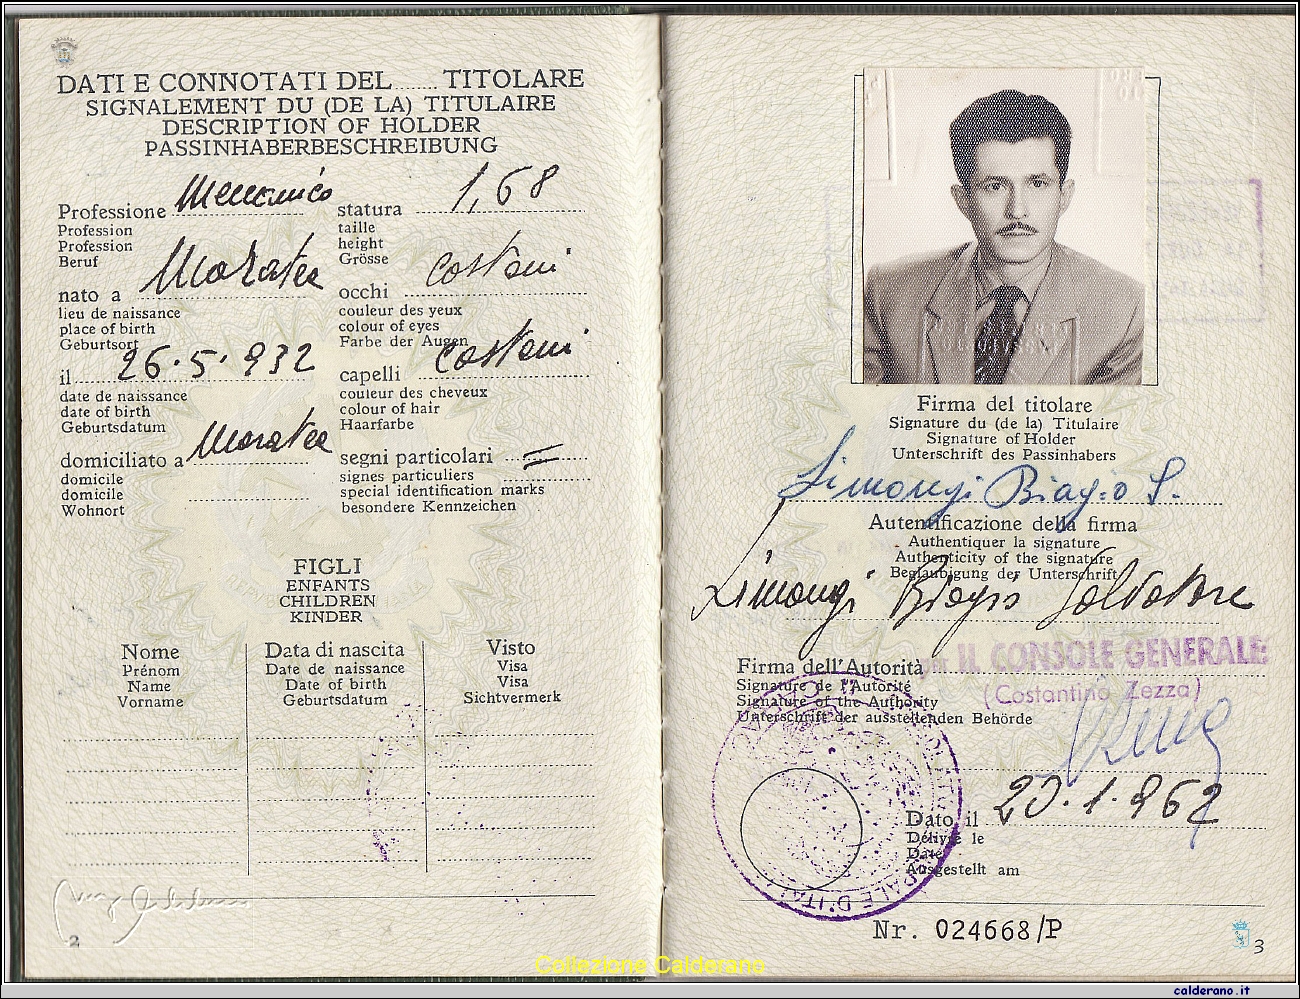 DATI E CONNOTATI DEL ........ TITOLARE
SIGNALEMENT DU (DE LA) TITULAIRE
DESCRIPTION OF HOLDER
PASSINHABERBESCHREIBUNG
Professione Meccanico
Profession
Profession
Beruf
nato a Maratea
lieu de naissance
place of birth
Geburtsort
il 26.5.932
date de naissance
date of birth
Geburtsdatum
domiciliato a Maratea
domicile
domicile
Wohnort
statura 1,68
taille
height
Grösse
occhi castani
couleur des yeux
colour of eyes
Farbe der Augen
capelli castani
couleur des cheveux
colour of hair
Haarfarbe
segni particolari =
signes particuliers
special identification marks
besondere Kennzeichen
FIGLI
ENFANTS
CHILDREN
KINDER
Nome
Prénom
Name
Vorname
Data di nascita
Date de naissance
Date of birth
Geburtsdatum
Visto
Visa
Visa
Sichtvermerk
2
Firma del titolare
Signature du (de la) Titulaire
Signature of Holder
Unterschrift des Passinhabers
Limongi Biagio S.
Autentificazione della firma
Authentiquer la signature
Authenticity of the signature
Beglaubigung der Unterschrift
Limongi Biagio Salvatore
Firma dell'Autorità
Signature de l'Autorité
Signature of the Authority
Unterschrift der ausstellenden Behörde
IL CONSOLE GENERALE
(Costantino Zezza)
Dato il 20.1.962
Délivré le
Date
Ausgestellt am
Nr. 024668/P
3
Collezione Calderano
calderano.it